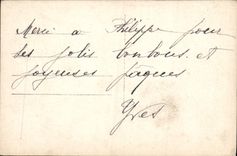 Merci à Philippe pour
les jolis bonbons et
joyeuses pâques
Yves